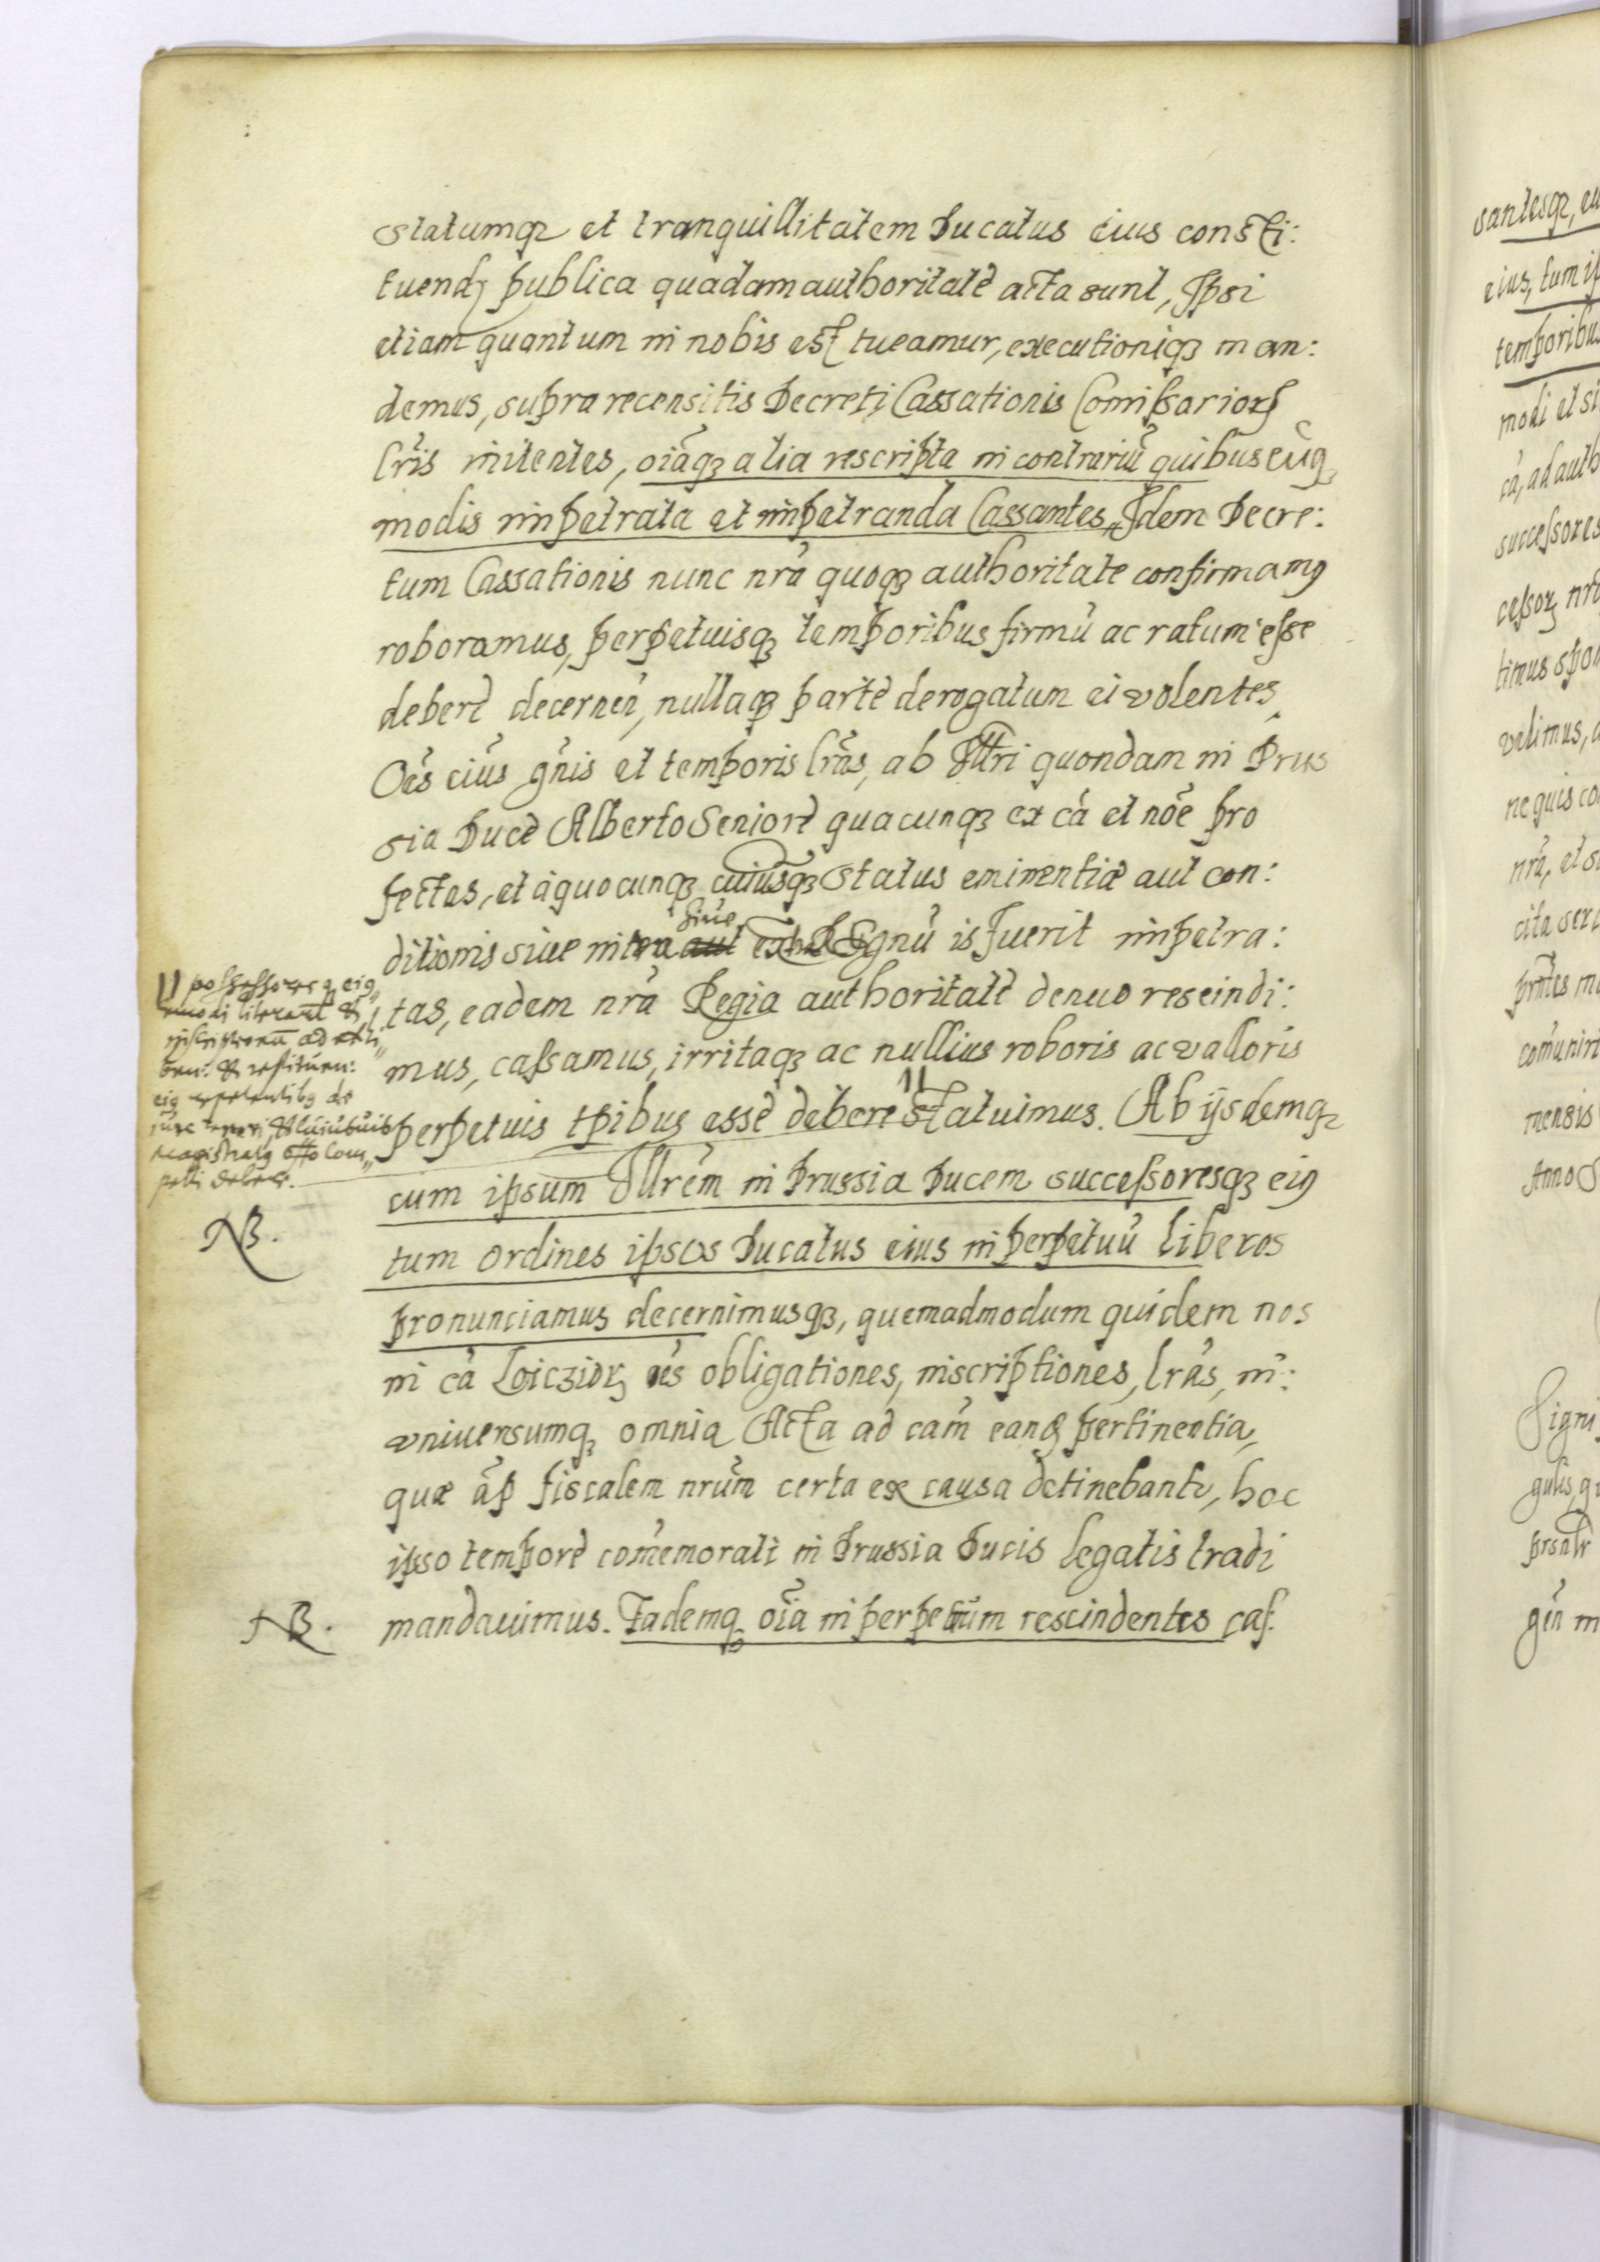 statumq₃ et tranquillitatem Ducatus eius consti:
tuend₃ publica quadam authoritate acta sunt, Ipsi
etiam quantum in nobis est tueamur, executioniq₃ man:
demus, supra recensitis Decreti Cassationis Comissarior₃
lr̃is initentes, oiãq₃ alia rescripta in contrariũ quibuscũq₃
modis impetrata et impetranda Cassantes, Idem Decre:
tum Cassationis nunc nrã quoq₃ authoritate confirmam9
roboramus, perpetuisq₃ temporibus firmũ ac ratum esse
debere decernen̄, nullaq₃ parte derogatum ei volentes,
Oẽs eius gñis et temporis lrãs, ab Illri quondam in Prus
sia Duce Alberto Seniore quacunq₃ ex cã et nõe pro
fectas, et à quocunq₃ cuiusq₃ status eminentiæ aut con:
ditionis siue intra siue extra Regnũ is fuerit impetra:
tas, eadem nrã Regia authoritate denuo rescindi:
mus, cassamus, irritaq₃ ac nullius roboris ac valloris
perpetuis tp̃ibus esse debere statuimus. Ab ijsdemq₃
cum ipsum Illrem in Prussia Ducem successoresq₃ ei9
tum ordines ipsos Ducatus eius in perpetuũ liberos
pronunciamus decernimusq₃, quemadmodum quidem nos
in cã Loiczior₃ oẽs obligationes, inscriptiones, lrãs, in:
vniuersumq₃ omnia Acta ad cam̃ eand₃ pertinentia,
quæ ãp fiscalem nrũm certa ex causa detinebantr, hoc
ipso tempore comemorati in Prussia Ducis legatis tradi
mandauimus. Eademq₃ oĩa in perpetuum rescindentes cas.
possessores q₃ ei9
modi literarũ &
inscriptionũ ad exhi
ben: & restituen:
eis repetentib9 de
iure teneri, &
magistratq offo com
pelli debere.
NB.
NB.